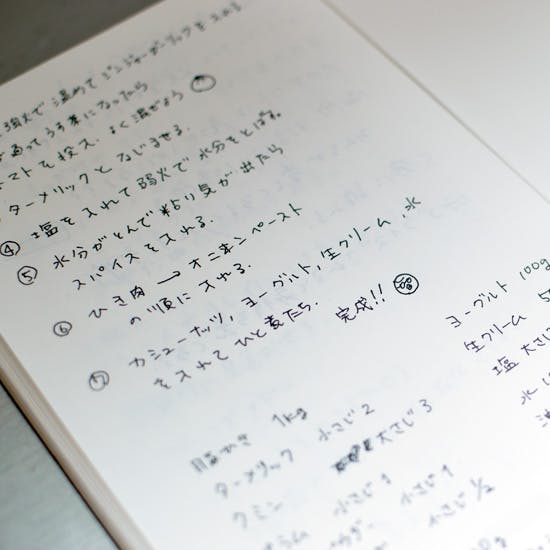 強火で温めてジンジャーガーリックを入れる
うす茶になったら
トマトを投入.よく混ぜよう
ターメリックとなじませる.
④ 塩を入れて弱火で水分をとばす.
⑤ 水分がとんで粘り気が出たら
スパイスを入れる.
⑥ ひき肉 → オニオンペースト
の順に入れる.
⑦ カシューナッツ,ヨーグルト,生クリーム,水
を入れてひと煮たち. 完成!!
ヨーグルト 100g
生クリーム
塩 大さじ
水
1kg
ターメリック 小さじ2
クミン 大さじ3
小さじ1
小さじ1
小さじ1/2